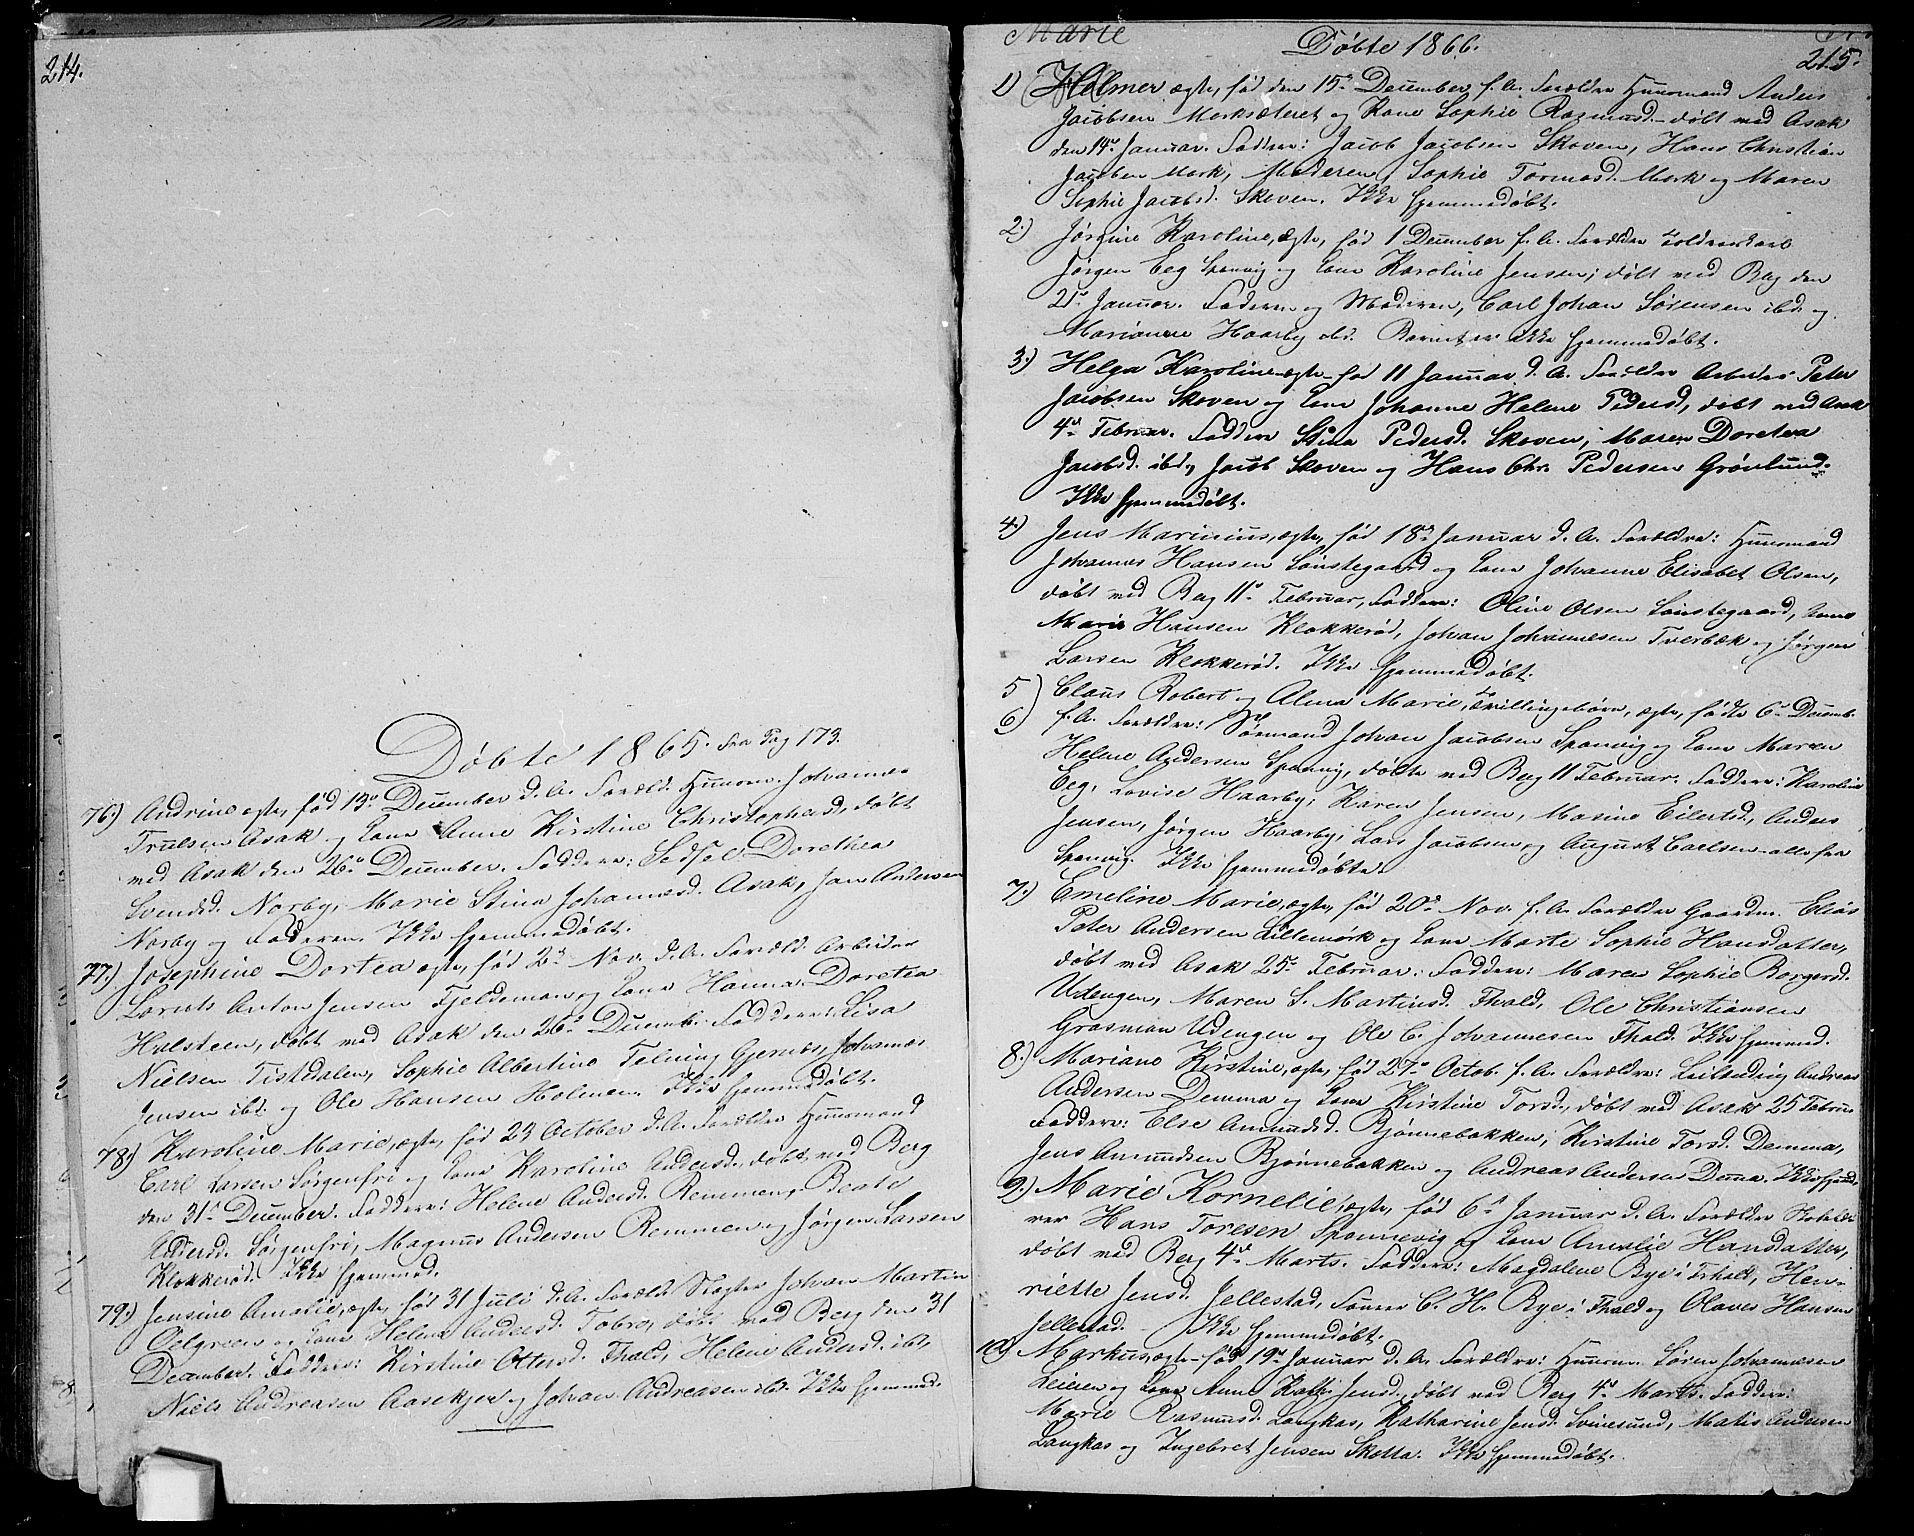 214.
Døbte 1865. fra Pag 173.
76.) Andrine ægte, fød 13de December d. A. Foræld. Huusm. Johannes
Trulsen Asak og Kone Anne Kirstine Christophersd, døbt
med Asak den 26de December. Faddere: Sedsel Dorethea
Svendsd. Norby, Marie Stina Johannesd. Asak, Jan Andersen
Norby og Faderen. Ikke hjemmedøbt.
77.) Josephine Dortea ægte, fød 2den Nov. d. A. Foræld. Arbeider
Lorents Anton Jensen Fjeldeman og Kone Hanna Doretea
Halsteen, døbt med Asak den 26de Decemb. Faddere: Lisa
Nielsen Tistdalen, Sophie Albertine Gjernæs, Johannes
Jensen ibd. og Ole Hansen Holmen. Ikke hjemmedøbt.
78.) Karoline Marie, ægte, fød 23 October d. A. Forældre Huusmand
Carl Larsen Sørgenfri og Kone Karoline Andersd. døbt med Berg
den 31te December. Faddere: Helene Andersd. Remmen, Beate
Andersd. Sørgenfri, Magnus Andersen Remmen og Jørgen Larsen
Klokkerød. Ikke hjemmed.
79.) Jensine Amalie, ægte, fød 31 Juli d. A. Foræld. Slagter Johan Martin
Oelgreen og Kone Helene Andersd. Tobro, døbt med Berg den 31
December. Faddere: Kirstine Ottersd. Fhald, Helene Andersd. ibd,
Niels Andreasen Aasekjer og Johan Andreasen ibd. Ikke hjemmed.
Marie
Døbte 1866.
215.
1) Helmer ægte, fød den 15de December f. A. Forældre Huusmand Anders
Jacobsen Morksæteret og Kone Sophie Rasmusd. døbt med Asak
den 14de Januar. Faddere: Jacob Jacobsen Skoven, Hans Christian
Jacobsen Mork, Moderen, Sophie Tormosd. Mork og Maren
Sophie Jacobsd. Skoven. Ikke hjemmedøbt.
2.) Jørgine Karoline, ægte, fød 1 December f. A. Forældre Toldroerskarl
Jørgen Eeg Sponvig og Kone Karoline Jensen, døbt med Berg den
21de Januar. Faderen og Moderen, Carl Johan Sørensen ibd og
Marianne Haarby ibd. Barnet er ikke hjemmedøbt.
3.) Helga Karoline ægte fød 11 Januar d. A. Forældre Arbeider Peter
Jacobsen Skoven og Kone Johanne Helene Pedersd, døbt med Asak
4de Februar. Faddere Stina Pedersd. Skoven, Maren Doretea
Jacobsd. ibd, Jacob Skoven og Hans Chr. Pedersen Grønlund.
Ikke hjemmedøbt.
4.) Jens Marinius, ægte, fød 18de Januar d. A. Forældre: Huusmand
Johannes Hansen Lønstegaard og Kone Johanne Elisabet Olsen,
døbt med Berg 11te Februar, Faddere: Oline Olsen Lønstegaard, Anne
Marie Hansen Klokkerød, Johan Johannesen Tverbæk og Jørgen
Larsen Klokkerød. Ikke hjemmedøbt.
5) Claus Robert og Alma Marie, tvillingebørn, ægte, fødte 6te Decemb.
6) f. A. Forældre: Sømand Johan Jacobsen Sponvig og Kone Maren
Helene Andersen Sponvig, døbte med Berg 11 Februar. Faddere: Karoline
Eeg, Lovise Haarby, Karen Jensen, Masine Eilertsd, Anders
Jensen, Jørgen Haarby, Lars Jacobsen og August Carlsen alle fra
Sponvig. Ikke hjemmedøbte.
7.) Emeline Marie, ægte, fød 20de Nov. f. A. Forældre Gaardm. Elias
Peter Andersen Lillemork og Kone Marte Sophie Hansdatter,
døbt med Asak 25de Februar. Faddere: Maren Sophie Borgersd.
Udengen, Maren S. Martinsd. Fhald, Ole Christiansen
Grasman Udengen og Ole C. Johannesen Fhald. Ikke hjemmed.
8.) Mariane Kirstine, ægte, fød 27de Octob. f. A. Forældre: Leilending Andreas
Andersen Demma og Kone Kirstine Torsd, døbt med Asak 25 Februar
Faddere: Else Amundsd. Bjønnebakken, Kirstine Torsd. Demma,
Jens Amundsen Bjønnebakken og Andreas Andersen Dema. Ikke hjemd.
9.) Marie Kornelie, ægte, fød 6te Januar d. A. Forældre
rer Hans Toresen Sponnevig og Kone Amalie Hansdatter,
døbt med Berg 4de Marts. Faddere: Magdalene Bye i Frhald, Hen-
riette Jensd. Jellestad, Snurer C. H. Bye i Fhald og Olaves Hansen
Jellestad. Ikke hjemmedøbt.
10) Markus, ægte fød 19de Januar d. A. Forældre: Huusm. Søren Johannesen
Leieren og Kone Anne Kathr. Jensd, døbt med Berg 4de Marts. Faddere:
Marie Rasmusd. Langkas, Katharine Jensd. Svinesund, Matis Andersen
Langkas og Ingebret Jensen Skotta. Ikke hjemmedøbt.